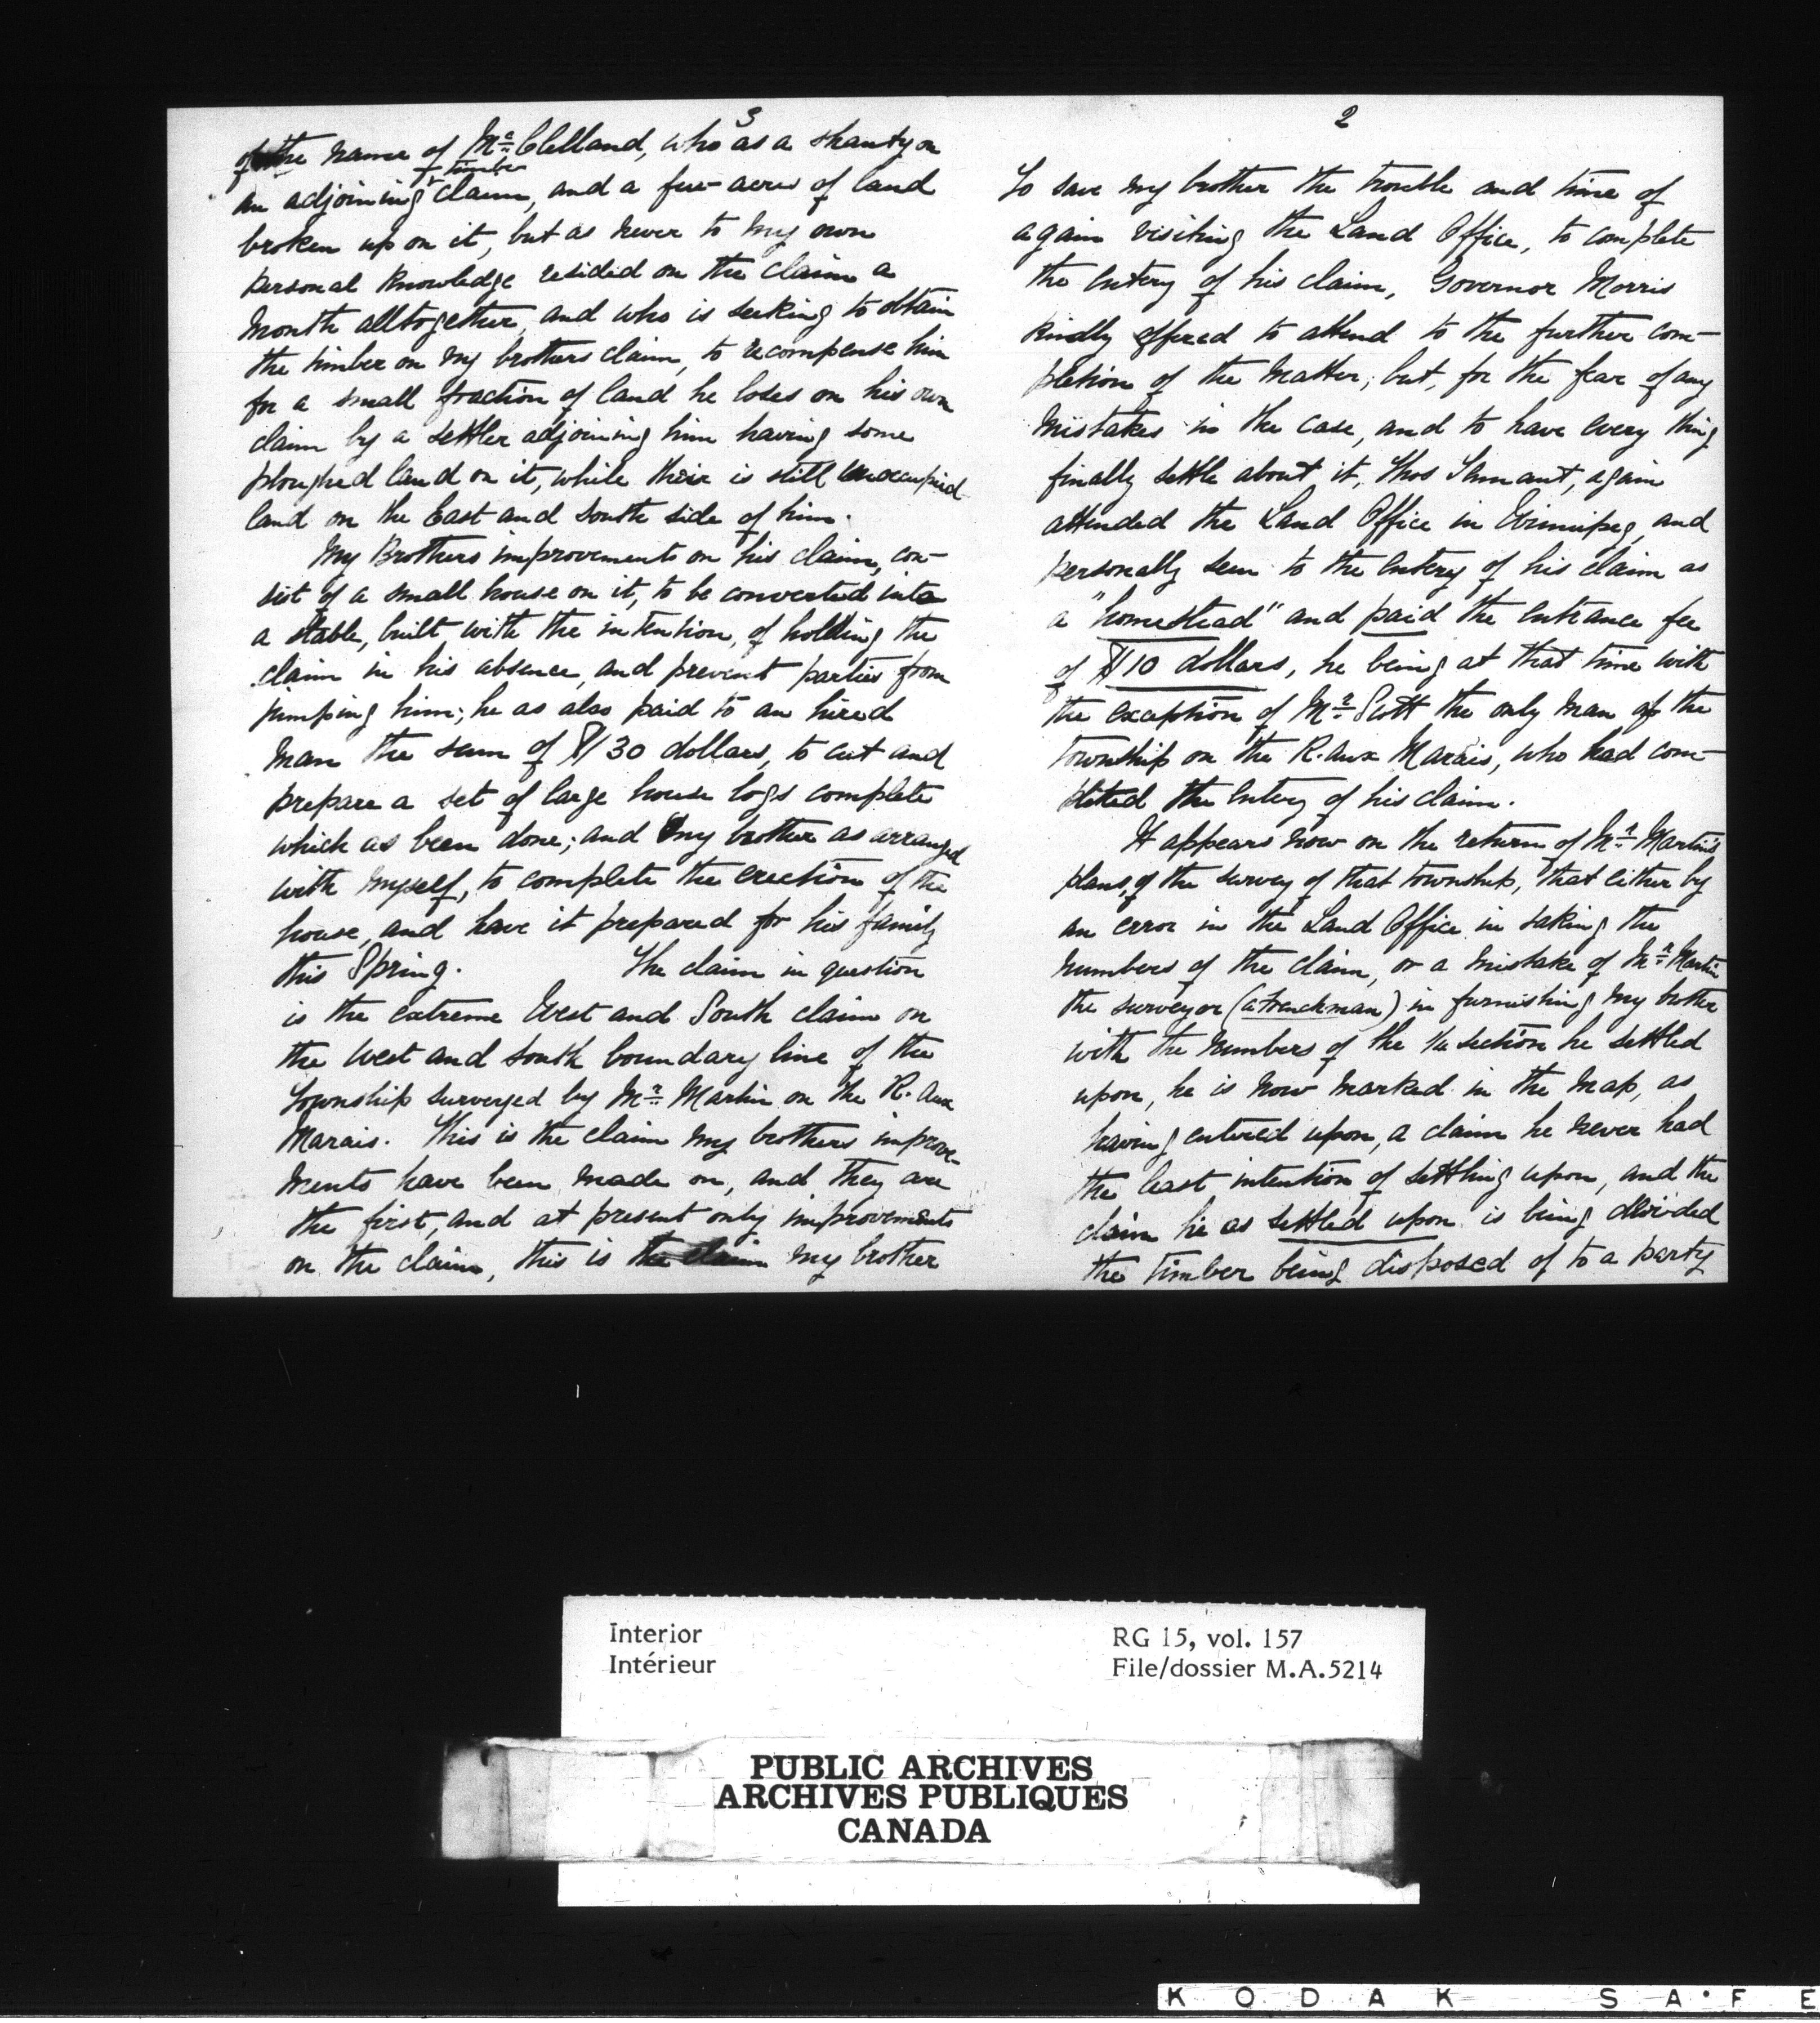 3
of the name of Mr Clelland, who as a shanty on
an adjoining timber claim, and a few acres of land
broken up on it, but as never to my own
personal knowledge resided on the claim a
month alltogether, and who is seeking to obtain
the timber on my brothers claim, to recompense him
for a small fraction of land he loses on his own
claim by a settler adjoining him having some
ploughed land on it, while their is still unoccupied
land on the East and South side of him.
My Brothers improvements on his claim, con-
sist of a small house on it, to be converted into
a stable, built, with the intention, of holding the
claim in his absence, and prevent parties from
jumping him; he as also paid to an hired
man the sum of $30 dollars, to cut and
prepare a set of large house logs complete
which as been done; and my brother as arranged
with myself, to complete the erection of the
house, and have it prepared for his family
this Spring. The claim in question
is the extreme West and South claim on
the west and south boundary line of the
Township surveyed by Mr Martin on the R. Aux
Marais. This is the claim my brothers improve-
ments have been made on, and they are
the first, and at present only improvements
on the claim, this is the claim my brother
2
To save my brother the trouble and time of
again visiting the Land Office, to complete
the entery of his claim, Governor Morris
kindly offered to attend to the further com-
pletion of the matter; but, for the fear of any
mistakes in the case, and to have every thing
finally settle about it, Thos again
attended the Land Office in Winnipeg, and
personally seen to the entery of his claim as
a "homestead" and paid the entrance fee
of $10 dollars, he being at that time with
the exception of Mr Scott the only man of the
township on the R. Aux Marais, who had com-
pleted the entery of his claim.
It appears now on the return of Mr Martins
plans, of the survey of that township, that either by
an error in the Land Office in taking the
numbers of the claim, or a mistake of Mr Martin
the surveyor (a frenchman) in furnishing my brother
with the numbers of the 1/4 section he settled
upon, he is now marked in the map, as
having entered upon, a claim he never had
the least intention of settling upon, and the
claim he as settled upon is being divided
the timber being disposed of to a party
Interior
Intérieur
RG 15, vol. 157
File/dossier M.A.5214
PUBLIC ARCHIVES
ARCHIVES PUBLIQUES
CANADA
KODAK SAFE